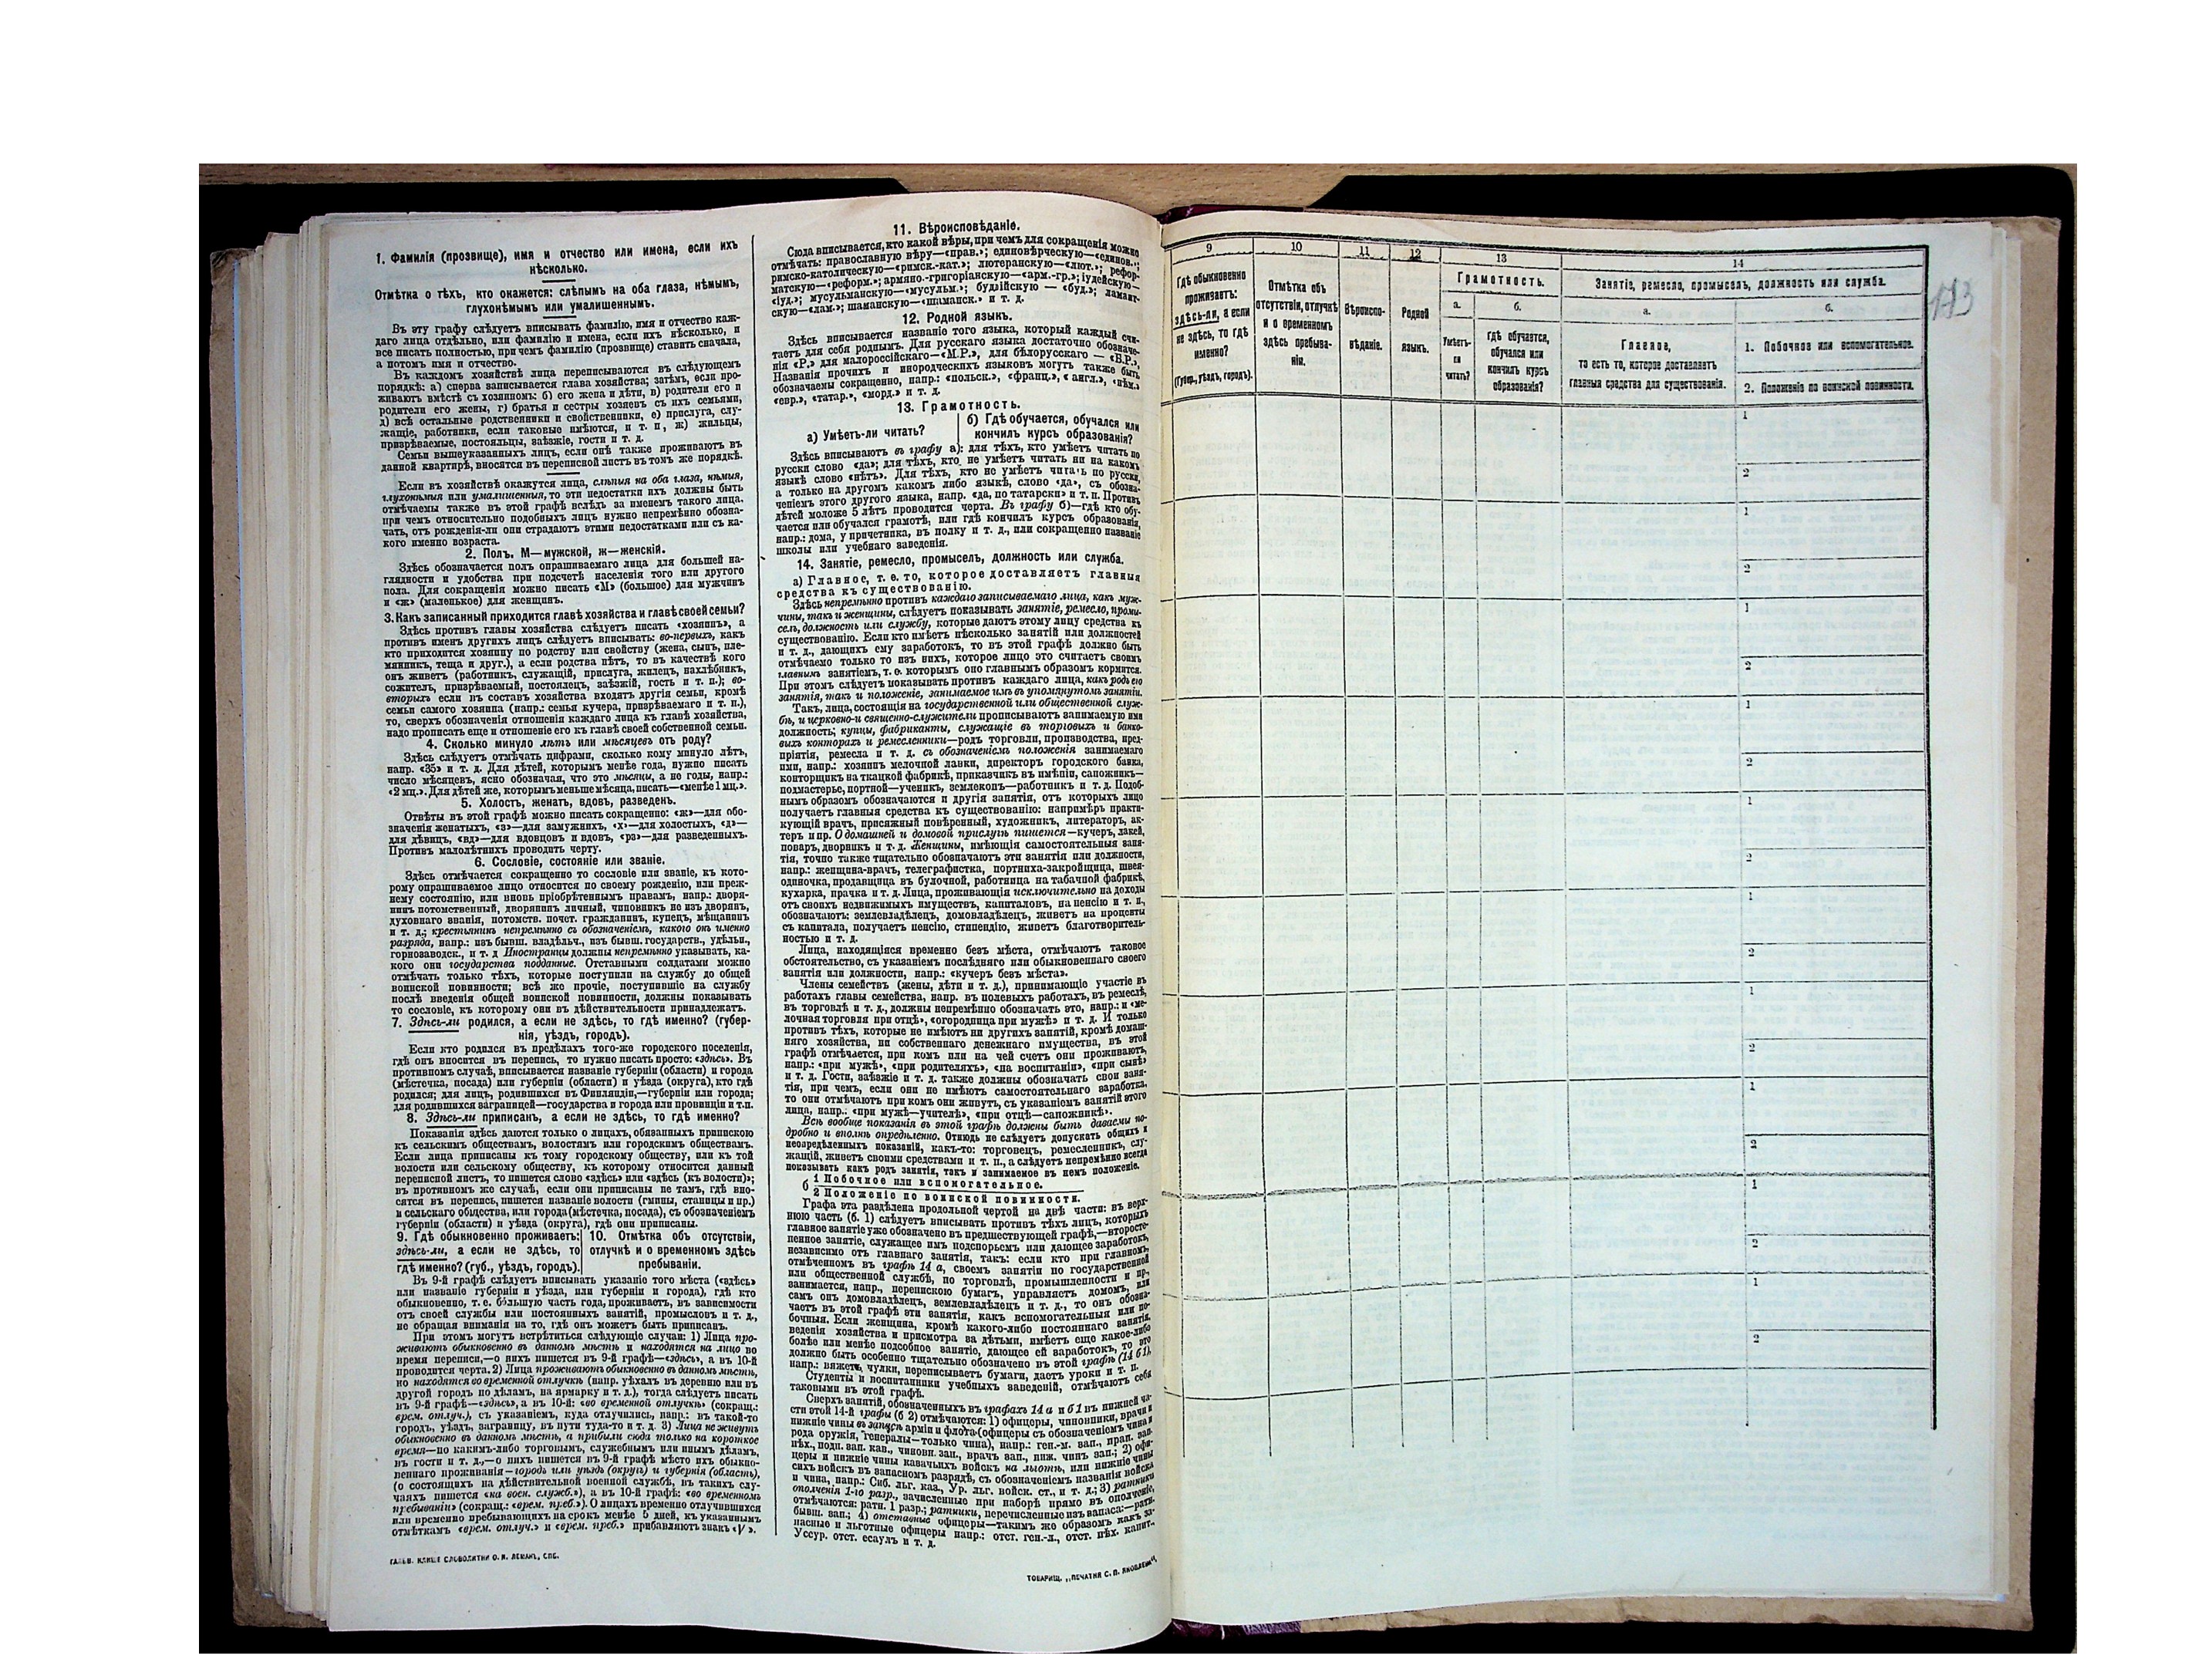 1. Фамилія (прозвище), имя и отчество или имена, если ихъ
нѣсколько.
Отмѣтка о тѣхъ, кто окажется: слѣпымъ на оба глаза, нѣмымъ,
глухонѣмымъ или умалишеннымъ.
Въ эту графу слѣдуетъ вписывать фамилію, имя и отчество каж-
даго лица отдѣльно, или фамилію и имена, если ихъ нѣсколько, и
все писать полностью, при чемъ фамилію (прозвище) ставить сначала,
а потомъ имя и отчество.
Въ каждомъ хозяйствѣ лица переписываются въ слѣдующемъ
порядкѣ: а) сперва записывается глава хозяйства; затѣмъ, если про-
живаютъ вмѣстѣ съ хозяиномъ: б) его жена и дѣти, в) родители его и
родители его жены, г) братья и сестры хозяевъ съ ихъ семьями,
д) всѣ остальные родственники и свойственники, е) прислуга, слу-
жащіе, работники, если таковые имѣются, и т. п., ж) жильцы,
призрѣваемые, постояльцы, заѣзжіе, гости и т. д.
Семьи вышеуказанныхъ лицъ, если онѣ также проживаютъ въ
данной квартирѣ, вносятся въ переписной листъ въ томъ же порядкѣ.
Если въ хозяйствѣ окажутся лица, слѣпыя на оба глаза, нѣмыя,
глухонѣмыя или умалишенныя, то эти недостатки ихъ должны быть
отмѣчаемы также въ этой графѣ вслѣдъ за именемъ такого лица,
при чемъ относительно подобныхъ лицъ нужно непремѣнно обозна-
чать, отъ рожденія-ли они страдаютъ этими недостатками или съ ка-
кого именно возраста.
2. Полъ. М—мужской, ж—женскій.
Здѣсь обозначается полъ опрашиваемаго лица для большей на-
глядности и удобства при подсчетѣ населенія того или другого
пола. Для сокращенія можно писать «М» (большое) для мужчинъ
и «ж» (маленькое) для женщинъ.
3. Какъ записанный приходится главѣ хозяйства и главѣ своей семьи?
Здѣсь противъ главы хозяйства слѣдуетъ писать «хозяинъ», а
противъ именъ другихъ лицъ слѣдуетъ вписывать: во-первыхъ, какъ
кто приходится хозяину по родству или свойству (жена, сынъ, пле-
мянникъ, теща и друг.), а если родства нѣтъ, то въ качествѣ кого
онъ живетъ (работникъ, служащій, прислуга, жилецъ, нахлѣбникъ,
сожитель, призрѣваемый, постоялецъ, заѣзжій, гость и т. п.); во-
вторыхъ если въ составъ хозяйства входятъ другія семьи, кромѣ
семьи самого хозяина (напр.: семья кучера, призрѣваемаго и т. п.),
то, сверхъ обозначенія отношенія каждаго лица къ главѣ хозяйства,
надо прописать еще и отношеніе его къ главѣ своей собственной семьи.
4. Сколько минуло лѣтъ или мѣсяцевъ отъ роду?
Здѣсь слѣдуетъ отмѣчать цифрами, сколько кому минуло лѣтъ,
напр. «35» и т. д. Для дѣтей, которымъ менѣе года, нужно писать
число мѣсяцевъ, ясно обозначая, что это мѣсяцы, а не годы, напр.:
«2 мц.». Для дѣтей же, которымъ меньше мѣсяца, писать—«менѣе 1 мц.».
5. Холостъ, женатъ, вдовъ, разведенъ.
Отвѣты въ этой графѣ можно писать сокращенно: «ж»—для обо-
значенія женатыхъ, «з»—для замужнихъ, «х»—для холостыхъ, «д»—
для дѣвицъ, «вд»—для вдовцовъ и вдовъ, «рз»—для разведенныхъ.
Противъ малолѣтнихъ проводить черту.
6. Сословіе, состояніе или званіе.
Здѣсь отмѣчается сокращенно то сословіе или званіе, къ кото-
рому опрашиваемое лицо относится по своему рожденію, или преж-
нему состоянію, или вновь пріобрѣтеннымъ правамъ, напр.: дворя-
нинъ потомственный, дворянинъ личный, чиновникъ не изъ дворянъ,
духовнаго званія, потомств. почет. гражданинъ, купецъ, мѣщанинъ
и т. д.; крестьянинъ непремѣнно съ обозначеніемъ, какого онъ именно
разряда, напр.: изъ бывш. владѣльч., изъ бывш. государств., удѣльн.,
горнозаводск., и т. д Иностранцы должны непремѣнно указывать, ка-
кого они государства подданные. Отставными солдатами можно
отмѣчать только тѣхъ, которые поступили на службу до общей
воинской повинности; всѣ же прочіе, поступившіе на службу
послѣ введенія общей воинской повинности, должны показывать
то сословіе, къ которому они въ дѣйствительности принадлежатъ.
7. Здѣсь-ли родился, а если не здѣсь, то гдѣ именно? (губер-
нія, уѣздъ, городъ).
Если кто родился въ предѣлахъ того-же городского поселенія,
гдѣ онъ вносится въ перепись, то нужно писать просто: «здѣсь». Въ
противномъ случаѣ, вписывается названіе губерніи (области) и города
(мѣстечка, посада) или губерніи (области) и уѣзда (округа), кто гдѣ
родился; для лицъ, родившихся въ Финляндіи,—губерніи или города;
для родившихся заграницей—государства и города или провинціи и т.п.
8. Здѣсь-ли приписанъ, а если не здѣсь, то гдѣ именно?
Показанія здѣсь даются только о лицахъ, обязанныхъ припискою
къ сельскимъ обществамъ, волостямъ или городскимъ обществамъ.
Если лица приписаны къ тому городскому обществу, или къ той
волости или сельскому обществу, къ которому относится данный
переписной листъ, то пишется слово «здѣсь» или «здѣсь (къ волости)»;
въ противномъ же случаѣ, если они приписаны не тамъ, гдѣ вно-
сятся въ перепись, пишется названіе волости (гмины, станицы и пр.)
и сельскаго общества, или города (мѣстечка, посада), съ обозначеніемъ
губерніи (области) и уѣзда (округа), гдѣ они приписаны.
9. Гдѣ обыкновенно проживаетъ:
здѣсь-ли, а если не здѣсь, то
гдѣ именно? (губ., уѣздъ, городъ).
10. Отмѣтка объ отсутствіи,
отлучкѣ и о временномъ здѣсь
пребываніи.
Въ 9-й графѣ слѣдуетъ вписывать указаніе того мѣста («здѣсь»
или названіе губерніи и уѣзда, или губерніи и города), гдѣ кто
обыкновенно, т. е. бо́льшую часть года, проживаетъ, въ зависимости
отъ своей службы или постоянныхъ занятій, промысловъ и т. д.,
не обращая вниманія на то, гдѣ онъ можетъ быть приписанъ.
При этомъ могутъ встрѣтиться слѣдующіе случаи: 1) Лица про-
живаютъ обыкновенно въ данномъ мѣстѣ и находятся на лицо во
время переписи,—о нихъ пишется въ 9-й графѣ—«здѣсь», а въ 10-й
проводится черта. 2) Лица проживаютъ обыкновенно въ данномъ мѣстѣ,
но находятся во временной отлучкѣ (напр. уѣхалъ въ деревню или въ
другой городъ по дѣламъ, на ярмарку и т. д.), тогда слѣдуетъ писать
въ 9-й графѣ—«здѣсь», а въ 10-й: «во временной отлучкѣ» (сокращ.:
врем. отлуч.), съ указаніемъ, куда отлучились, напр.: въ такой-то
городъ, уѣздъ, заграницу, въ пути туда-то и т. д. 3) Лица не живутъ
обыкновенно въ данномъ мѣстѣ, а прибыли сюда только на короткое
время—по какимъ-либо торговымъ, служебнымъ или инымъ дѣламъ,
въ гости и т. д.,—о нихъ пишется въ 9-й графѣ мѣсто ихъ обыкно-
веннаго проживанія—городъ или уѣздъ (округъ) и губернія (область),
(о состоящихъ на дѣйствительной военной службѣ, въ такихъ слу-
чаяхъ пишется «на воен. служб.»), а въ 10-й графѣ: «во временномъ
пребываніи» (сокращ.: «врем. преб.»). О лицахъ временно отлучившихся
или временно пребывающихъ на срокъ менѣе 5 дней, къ указаннымъ
отмѣткамъ «врем. отлуч.» и «врем. преб.» прибавляютъ знакъ «V».
ГАЛЬВ. КЛИШЕ СЛОВОЛИТНИ О. И. ЛЕМАНЪ, СПБ.
11. Вѣроисповѣданіе.
Сюда вписывается, кто какой вѣры, при чемъ для сокращенія можно
отмѣчать: православную вѣру—«прав.»; единовѣрческую—«единов.»;
римско-католическую—«римск.-кат.»; лютеранскую—«лют.»; рефор-
матскую—«реформ.»; армяно-григоріанскую—«арм.-гр.»; іудейскую—
«іуд.»; мусульманскую—«мусульм.»; буддійскую — «буд.»; ламаит-
скую—«лам.»; шаманскую—«шаманск.» и т. д.
12. Родной языкъ.
Здѣсь вписывается названіе того языка, который каждый счи-
таетъ для себя роднымъ. Для русскаго языка достаточно обозначе-
нія «Р.» для малороссійскаго—«М.Р.», для бѣлорусскаго — «Б.Р.».
Названія прочихъ и инородческихъ языковъ могутъ также быть
обозначаемы сокращенно, напр.: «польск.», «франц.», «англ.», «нѣм.»
«евр.», «татар.», «морд.» и т. д.
13. Грамотность.
а) Умѣетъ-ли читать?
б) Гдѣ обучается, обучался или
кончилъ курсъ образованія?
Здѣсь вписываютъ въ графу а): для тѣхъ, кто умѣетъ читать по
русски слово «да»; для тѣхъ, кто не умѣетъ читать ни на какомъ
языкѣ слово «нѣтъ». Для тѣхъ, кто не умѣетъ читать по русски,
а только на другомъ какомъ либо языкѣ, слово «да», съ обозна-
ченіемъ этого другого языка, напр. «да, по татарски» и т. п. Противъ
дѣтей моложе 5 лѣтъ проводится черта. Въ графу б)—гдѣ кто обу-
чается или обучался грамотѣ, или гдѣ кончилъ курсъ образованія,
напр.: дома, у причетника, въ полку и т. д., или сокращенно названіе
школы или учебнаго заведенія.
14. Занятіе, ремесло, промыселъ, должность или служба.
а) Главное, т. е. то, которое доставляетъ главныя
средства къ существованію.
Здѣсь непремѣнно противъ каждаго записываемаго лица, какъ муж-
чины, такъ и женщины, слѣдуетъ показывать занятіе, ремесло, промы-
селъ, должность или службу, которые даютъ этому лицу средства къ
существованію. Если кто имѣетъ нѣсколько занятій или должностей
и т. д., дающихъ ему заработокъ, то въ этой графѣ должно быть
отмѣчаемо только то изъ нихъ, которое лицо это считаетъ своимъ
главнымъ занятіемъ, т. е. которымъ оно главнымъ образомъ кормится.
При этомъ слѣдуетъ показывать противъ каждаго лица, какъ родъ его
занятія, такъ и положеніе, занимаемое имъ въ упомянутомъ занятіи.
Такъ, лица, состоящія на государственной или общественной служ-
бѣ, и церковно-и священно-служители прописываютъ занимаемую ими
должность; купцы, фабриканты, служащіе въ торговыхъ и банко-
выхъ конторахъ и ремесленники—родъ торговли, производства, пред-
пріятія, ремесла и т. д. съ обозначеніемъ положенія занимаемаго
ими, напр.: хозяинъ мелочной лавки, директоръ городского банка,
конторщикъ на ткацкой фабрикѣ, приказчикъ въ имѣніи, сапожникъ—
подмастерье, портной—ученикъ, землекопъ—работникъ и т. д. Подоб-
нымъ образомъ обозначаются и другія занятія, отъ которыхъ лицо
получаетъ главныя средства къ существованію: напримѣръ практи-
кующій врачъ, присяжный повѣренный, художникъ, литераторъ, ак-
теръ и пр. О домашней и домовой прислугѣ пишется—кучеръ, лакей,
поваръ, дворникъ и т. д. Женщины, имѣющія самостоятельныя заня-
тія, точно также тщательно обозначаютъ эти занятія или должности,
напр.: женщина-врачъ, телеграфистка, портниха-закройщица, швея-
одиночка, продавщица въ булочной, работница на табачной фабрикѣ,
кухарка, прачка и т. д. Лица, проживающія исключительно на доходы
отъ своихъ недвижимыхъ имуществъ, капиталовъ, на пенсію и т. п.,
обозначаютъ: землевладѣлецъ, домовладѣлецъ, живетъ на проценты
съ капитала, получаетъ пенсію, стипендію, живетъ благотворитель-
ностью и т. д.
Лица, находящіяся временно безъ мѣста, отмѣчаютъ таковое
обстоятельство, съ указаніемъ послѣдняго или обыкновеннаго своего
занятія или должности, напр.: «кучеръ безъ мѣста».
Члены семействъ (жены, дѣти и т. д.), принимающіе участіе въ
работахъ главы семейства, напр. въ полевыхъ работахъ, въ ремеслѣ,
въ торговлѣ и т. д., должны непремѣнно обозначать это, напр.: и «ме-
лочная торговля при отцѣ», «огородница при мужѣ» и т. д. И только
противъ тѣхъ, которые не имѣютъ ни другихъ занятій, кромѣ домаш-
няго хозяйства, ни собственнаго денежнаго имущества, въ этой
графѣ отмѣчается, при комъ или на чей счетъ они проживаютъ,
напр.: «при мужѣ», «при родителяхъ», «на воспитаніи», «при сынѣ»
и т. д. Гости, заѣзжіе и т. д. также должны обозначать свои заня-
тія, при чемъ, если они не имѣютъ самостоятельнаго заработка,
то они отмѣчаютъ при комъ они живутъ, съ указаніемъ занятій этого
лица, напр.: «при мужѣ—учителѣ», «при отцѣ—сапожникѣ».
Всѣ вообще показанія въ этой графѣ должны быть даваемы по-
дробно и вполнѣ опредѣленно. Отнюдь не слѣдуетъ допускать общихъ и
неопредѣленныхъ показаній, какъ-то: торговецъ, ремесленникъ, слу-
жащій, живетъ своими средствами и т. п., а слѣдуетъ непремѣнно всегда
показывать какъ родъ занятія, такъ и занимаемое въ немъ положеніе.
б 1 Побочное или вспомогательное.
2 Положеніе по воинской повинности.
Графа эта раздѣлена продольной чертой на двѣ части: въ верх-
нюю часть (б. 1) слѣдуетъ вписывать противъ тѣхъ лицъ, которыхъ
главное занятіе уже обозначено въ предшествующей графѣ,—второсте-
пенное занятіе, служащее имъ подспорьемъ или дающее заработокъ,
независимо отъ главнаго занятія, такъ: если кто при главномъ,
отмѣченномъ въ графѣ 14 а, своемъ занятіи по государственной
или общественной службѣ, по торговлѣ, промышленности и пр.,
занимается, напр., перепискою бумагъ, управляетъ домомъ, или
самъ онъ домовладѣлецъ, землевладѣлецъ и т. д., то онъ обозна-
чаетъ въ этой графѣ эти занятія, какъ вспомогательныя или по-
бочныя. Если женщина, кромѣ какого-либо постояннаго занятія,
веденія хозяйства и присмотра за дѣтьми, имѣетъ еще какое-либо
болѣе или менѣе подсобное занятіе, дающее ей заработокъ, то это
должно быть особенно тщательно обозначено въ этой графѣ (14 б 1),
напр.: вяжетъ, чулки, переписываетъ бумаги, даетъ уроки и т. п.
Студенты и воспитанники учебныхъ заведеній, отмѣчаютъ себя
таковыми въ этой графѣ.
Сверхъ занятій, обозначенныхъ въ графахъ 14 а и б 1 въ нижней ча-
сти этой 14-й графы (б 2) отмѣчаются: 1) офицеры, чиновники, врачи и
нижніе чины въ запасѣ арміи и флота (офицеры съ обозначеніемъ чина и
рода оружія, генералы—только чина), напр.: ген.-м. зап., прап. зап.
пѣх., подп. зап. кав., чиновн. зап., врачъ зап., ниж. чинъ зап.; 2) офи-
церы и нижніе чины казачьихъ войскъ на льготѣ, или нижніе чины
сихъ войскъ въ запасномъ разрядѣ, съ обозначеніемъ названія войска
и чина, напр.: Сиб. льг. каз., Ур. льг. войск. ст., и т. д.; 3) ратники
ополченія 1-го разр., зачисленные при наборѣ прямо въ ополченіе,
отмѣчаются: ратн. 1 разр.; ратники, перечисленные изъ запаса:—ратн.
бывш. зап.; 4) отставные офицеры—такимъ же образомъ какъ за-
пасные и льготные офицеры напр.: отст. ген.-л., отст. пѣх. капит.,
Уссур. отст. есаулъ и т. д.
ТОВАРИЩ. „ПЕЧАТНЯ С. П. ЯКОВЛЕВА“
9 10 11 12 13 14
Гдѣ обыкновенно
проживаетъ:
здѣсь-ли, а если
не здѣсь, то гдѣ
именно?
(Губерн., уѣздъ, городъ).
Отмѣтка объ
отсутствіи, отлучкѣ
и о временномъ
здѣсь пребыва-
ніи.
Вѣроиспо-
вѣданіе.
Родной
языкъ.
Грамотность.
а.
Умѣетъ-
ли
читать?
б.
гдѣ обучается,
обучался или
кончилъ курсъ
образованія?
Занятіе, ремесло, промыселъ, должность или служба.
а.
Главное,
то есть то, которое доставляетъ
главныя средства для существованія.
б.
1. Побочное или вспомогательное.
2. Положеніе по воинской повинности.
1
2
1
2
1
2
1
2
1
2
1
2
1
2
1
2
1
2
1
2